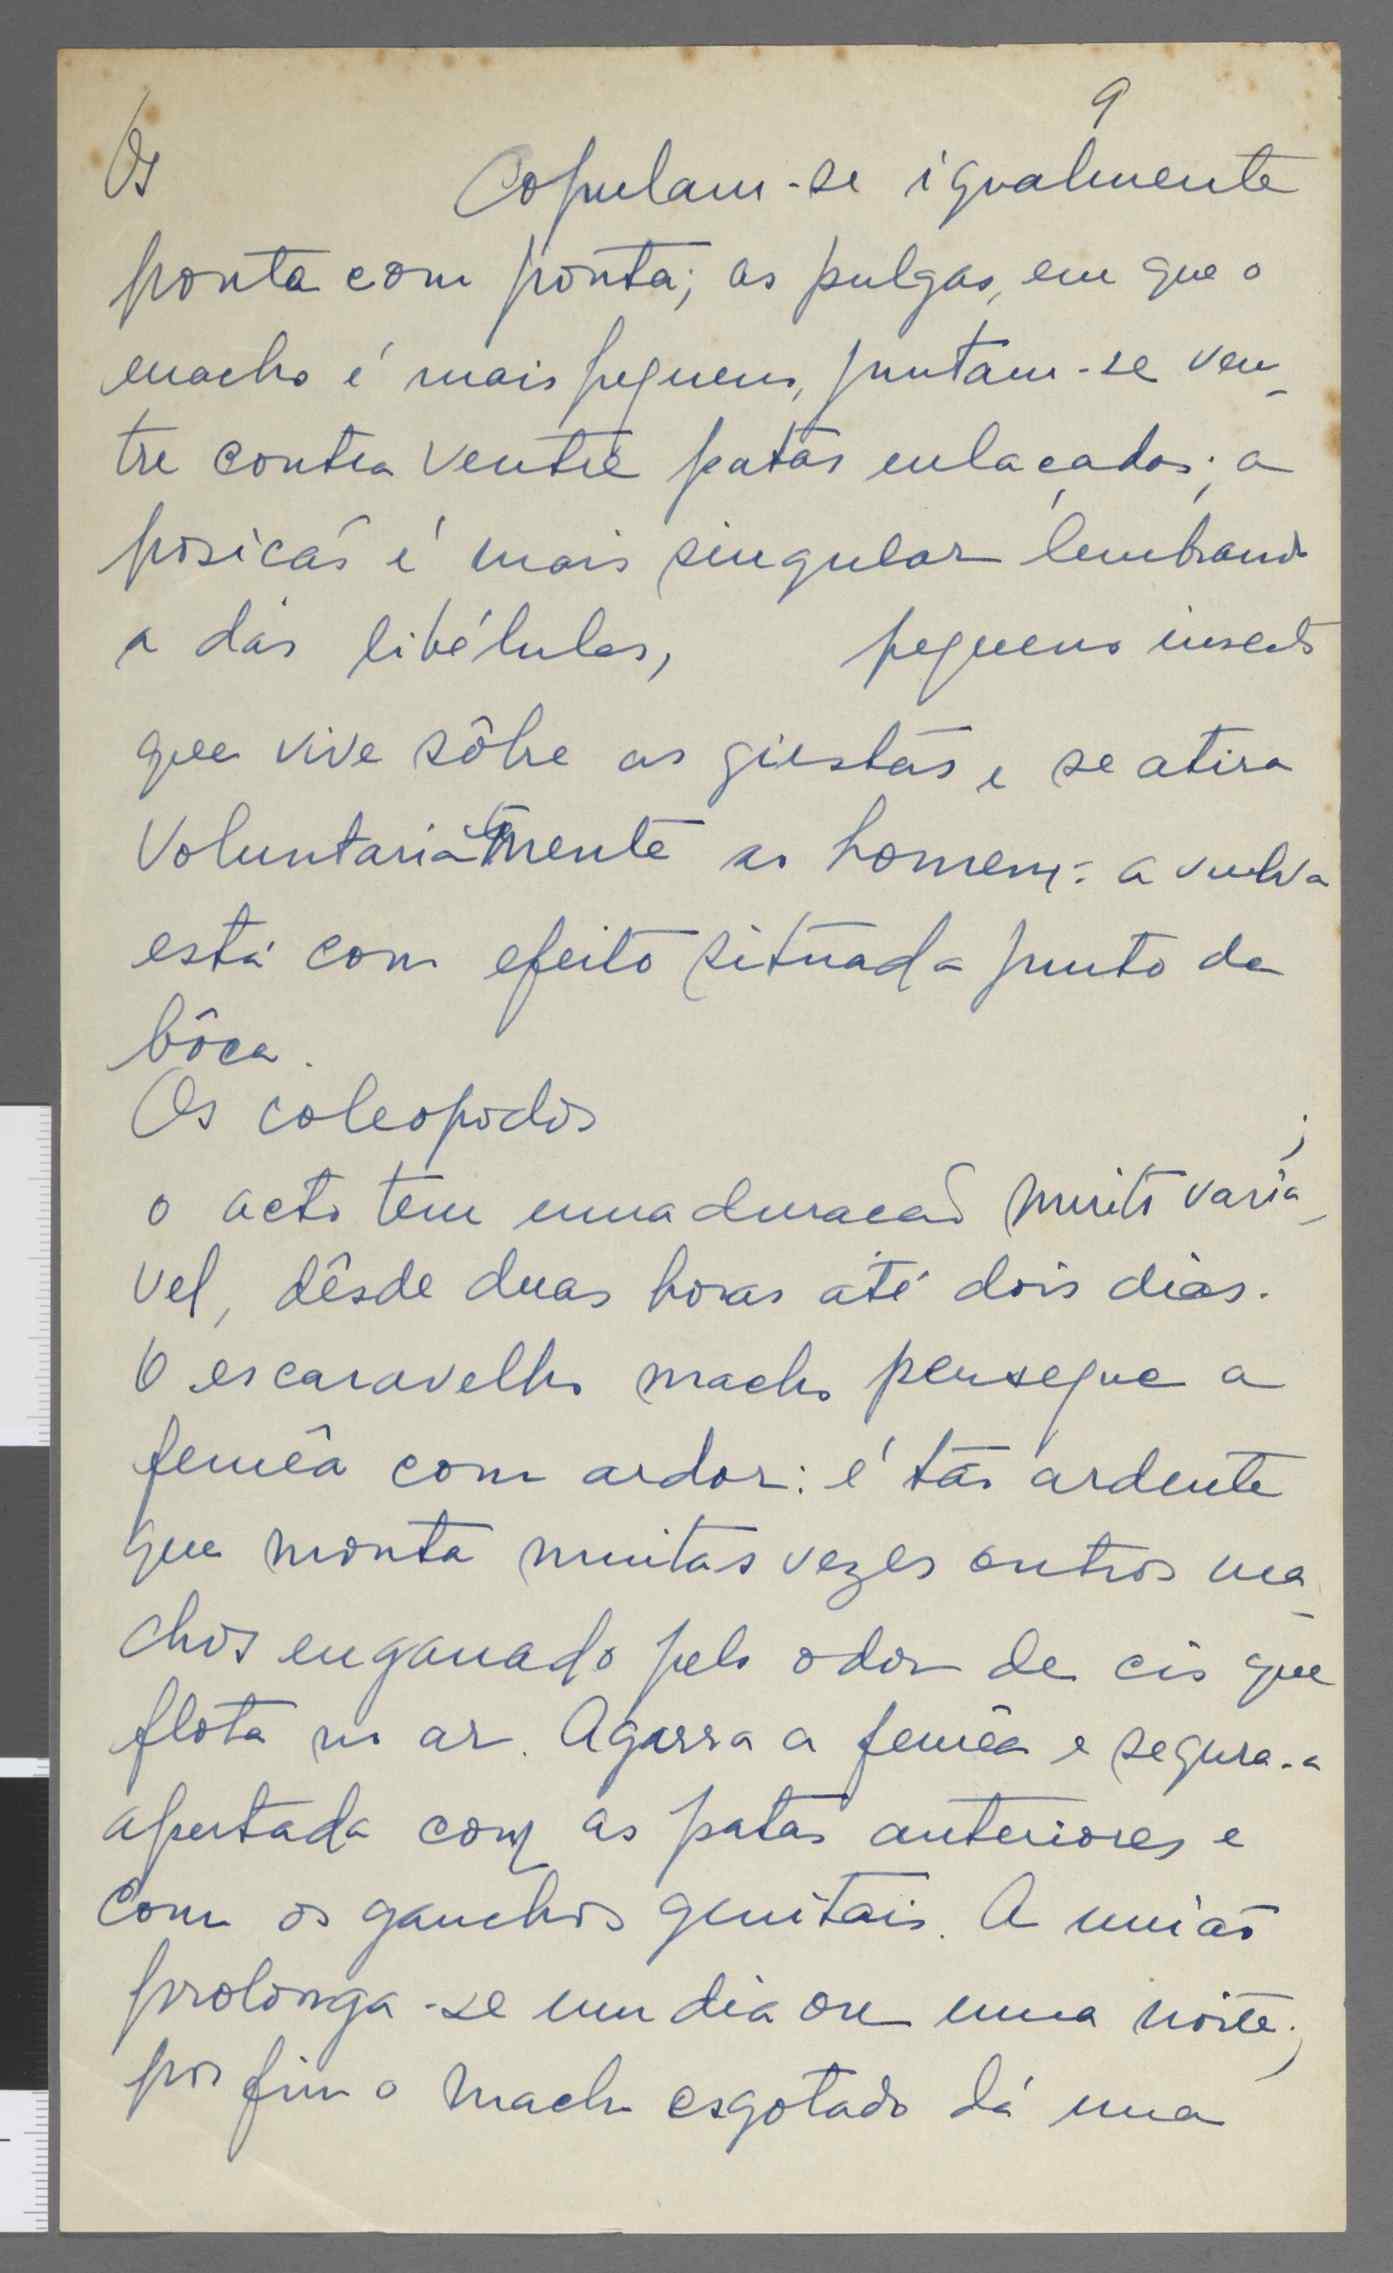 9
Os Copulam-se igualmente
ponta com ponta; as pulgas, em que o
macho é mais pequeno, juntam-se ven-
tre contra ventre patas enlaçadas; a
posição é mais singular lembrando
a das libélulas, pequeno insecto
que vive sôbre as giestas e se atira
voluntariamente ao homem: a vulva
está com efeito situada junto da
bôca.
Os coleopodos ;
o acto tem uma duração muito variá-
vel, dêsde duas horas até dois dias.
O escaravelho macho persegue a
femêa com ardor: é tão ardente
que monta muitas vezes outros ma-
chos enganado pelo odor de cio que
flota no ar. Agarra a femêa e segura-a
apertada com as patas anteriores e
com os ganchos genitais. A união
prolonga-se um dia ou uma noite;
por fim o macho esgotado dá uma